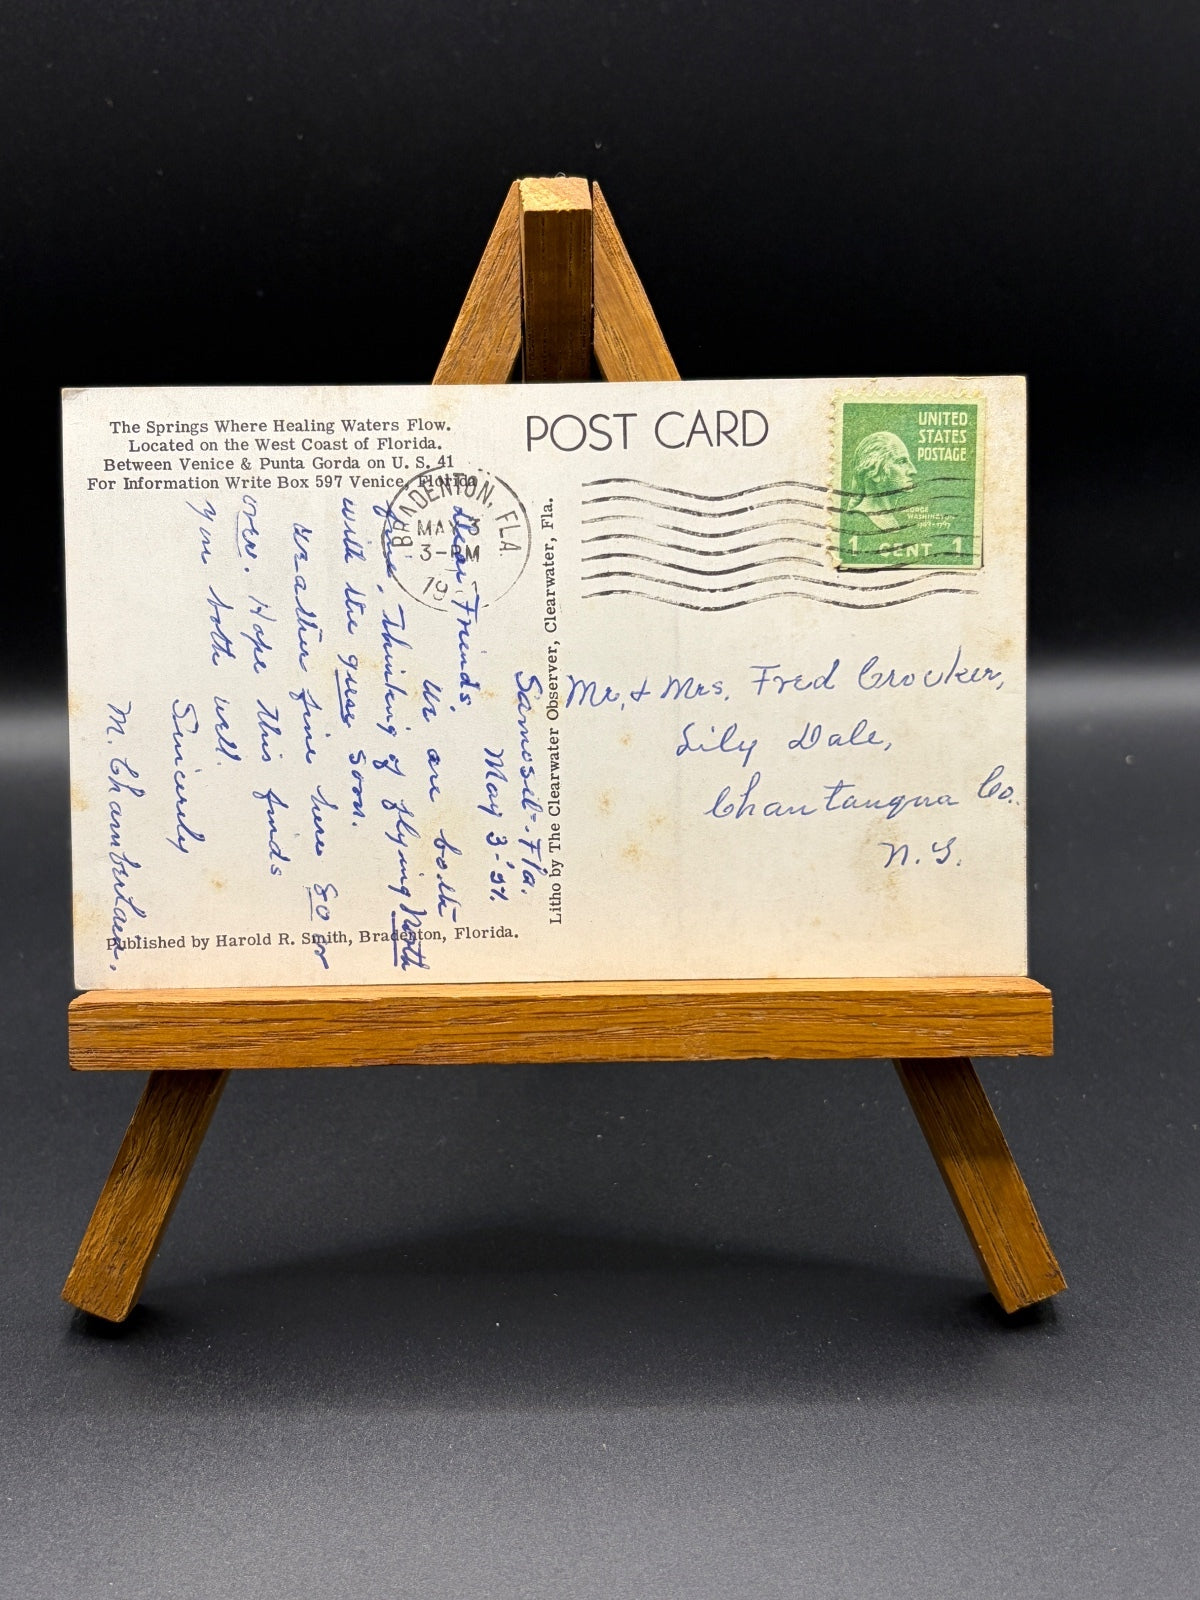 The Springs Where Healing Waters Flow.
Located on the West Coast of Florida.
Between Venice & Punta Gorda on U. S. 41
For Information Write Box 597 Venice, Florida
POST CARD
UNITED
STATES
POSTAGE
GEORGE
WASHINGTON
1 CENT 1
BRADENTON, FLA.
MAY 3
3-PM
19
Samosit-Fla.
May 3-'51.
Dear Friends,
We are both
fine, Thinking of flying North
with the geese soon.
Weather fine here 80 or
over. Hope this finds
you both well.
Sincerely
M. Chamberlain.
Litho by The Clearwater Observer, Clearwater, Fla.
Mr, & Mrs. Fred Crocker,
Lily Dale,
Chautauqua Co.
N.Y.
Published by Harold R. Smith, Bradenton, Florida.